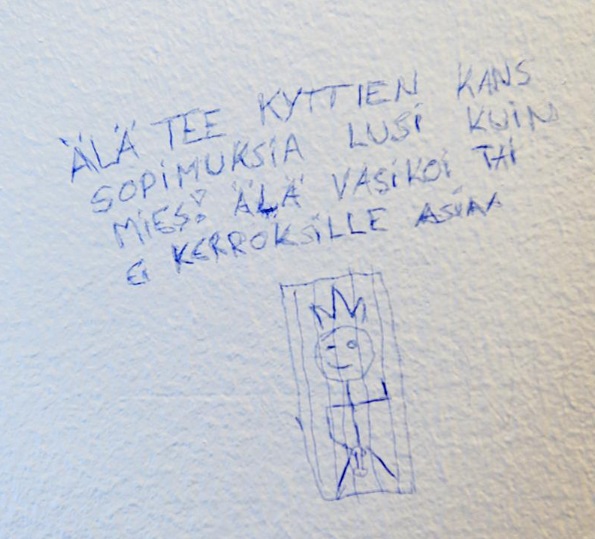 ÄLÄ TEE KYTTIEN KANS
SOPIMUKSIA LUSI KUIN
MIES! ÄLÄ VASIKOI TAI
EI KERROKSILLE ASIAA